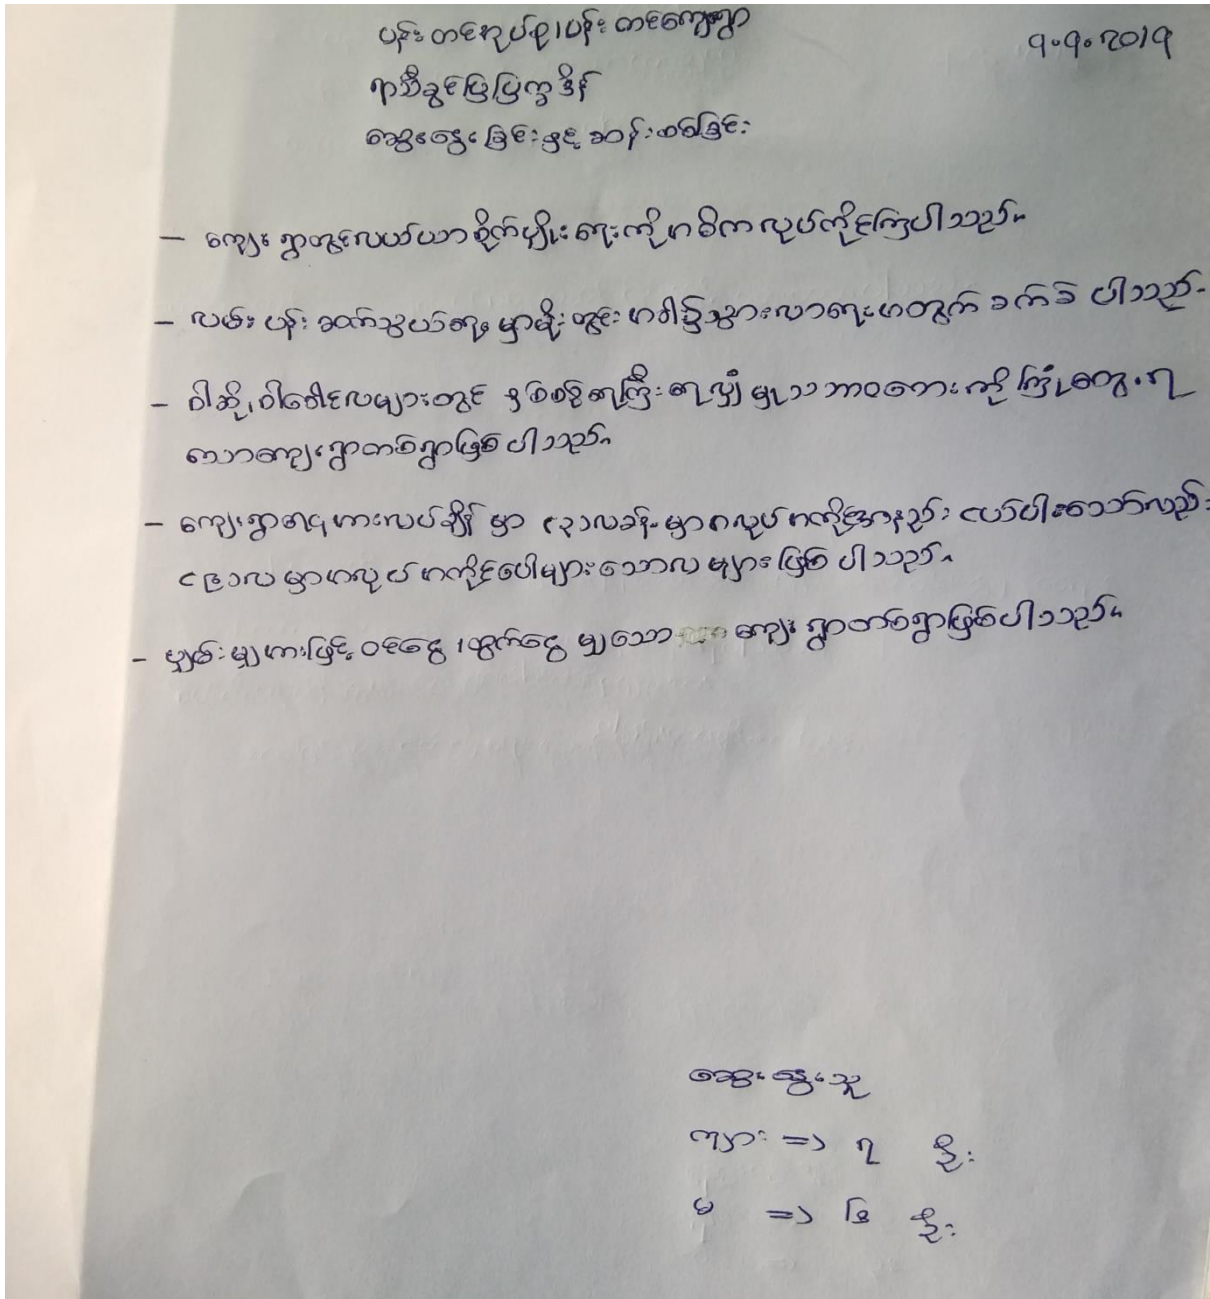 ပန်းတင်အုပ်စု၊ ပန်းတင်ကျေးရွာ
၇.၇.2019
ရာသီခွင်ပြပြက္ခဒိန်
ဆွေးနွေးခြင်းနှင့် ဆန်းစစ်ခြင်း
– ကျေးရွာတွင်လယ်ယာစိုက်ပျိုးရေးကို အဓိကလုပ်ကိုင်ကြပါသည်။
– လမ်းပန်းဆက်သွယ်ရေးမှာမိုးတွင်းအခါ၌သွားလာရေးအတွက် ခက်ခဲ ပါသည်။
– ဝါဆို၊ ဝါခေါင်လများတွင် နှစ်စဉ်ရေကြီးရေလျှံမှုသဘာဝဘေးကို ကြုံတွေ့ရ
သောကျေးရွာတစ်ရွာဖြစ်ပါသည်။
– ကျေးရွာ၏ အားလပ်ချိန် မှာ လခန့်မှာအလုပ်အကိုင်အနည်းငယ်ပါးသော်လည်း
လမှာအလုပ်အကိုင်ပေါများသောလများ ဖြစ်ပါသည်။
– ပျှမ်းမျှအားဖြင့် ဝင်ငွေ၊ ထွက်ငွေ မျှသော ကျေးရွာတစ်ရွာဖြစ်ပါသည်။
ဆွေးနွေးသူ
ကျား => ၇ ဦး
မ => ဦး